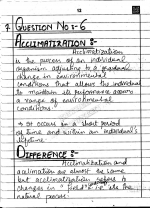 12
7 QUESTION NO :- 6
ACCLIMATIZATION :-
Acclimatization
is the process of an individual
organism adjusting to a gradual
change in environmental
conditions that allows the individual
to maintain its performance across
a range of environmental
conditions.
→ It occurs in a short period
of time and within an individual's
lifetime
DIFFERENCE :-
Acclimatization and
acclimation are almost as same
but acclimatization refers to
changes in "field" i.e. its the
natural process.